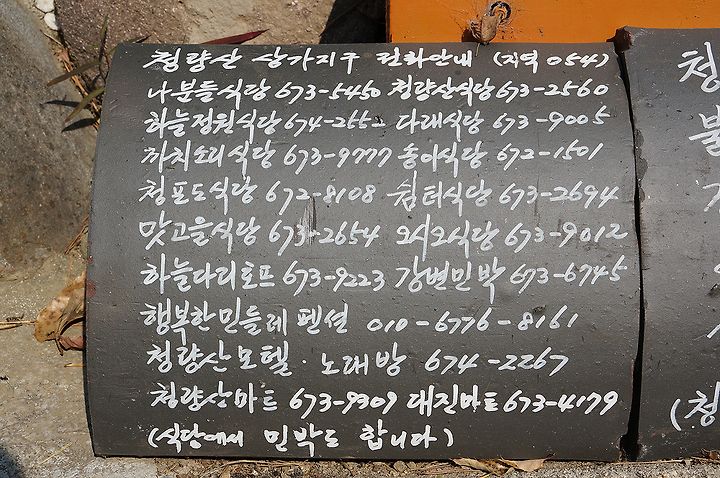 청량산 상가지구 전화안내 (지역 054)
나분들식당 673-5450 청량산식당 673-2560
하늘정원식당 674-2552 다래식당 673-9005
까치소리식당 673-9777 동아식당 672-1501
청포도식당 672-8108 쉼터식당 673-2694
맛고을식당 673-2654 오시오식당 673-9012
하늘다리토프 673-9223 강변민박 673-6745
행복한민들레 펜션 010-6776-8161
청량산모텔·노래방 674-2267
청량산마트 673-9309 대진마트 673-4179
(식당에서 민박도 합니다)
청
불
(청